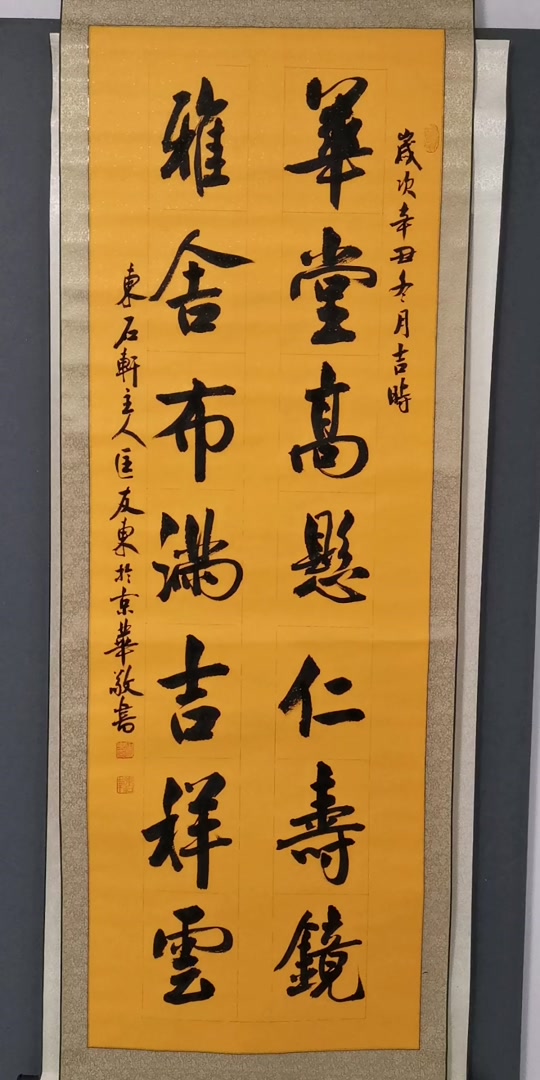 歲次辛丑冬月吉時
華堂高懸仁壽鏡
雅舍布滿吉祥雲
東石軒主人匡友東於京華敬書